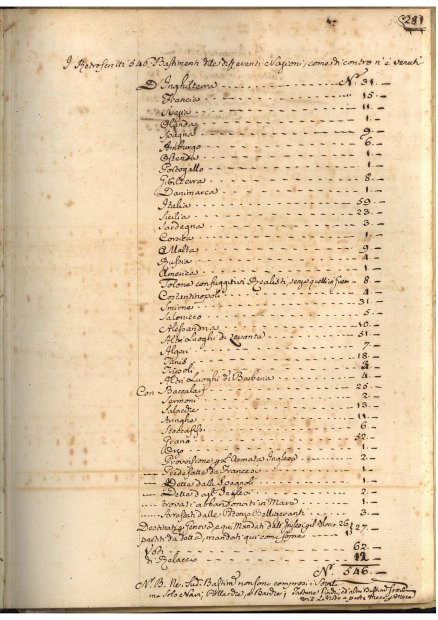 281
I Retroscritti 546 Bastimenti delle differenti Nazioni, come di contro n'è venuti
D'Inghilterra N.° 31.
Francia 15
Svezia 11.
Olanda 1.
Spagna 9
Amburgo 6.
Ostenda 1.
Portogallo 1.
Gibilterra 8
Danimarca 1.
Italia 59.
Sicilia 23.
Sardegna 3.
Corsica 1.
Malta 9
Russia 4
America 1
Tolone con fuggitivi Realisti, 8
Costantinopoli 4
Smirne 31
Salonicco 5
Alessandria 10
Altri Luoghi di Levante 51
Algeri 7
Tunis 18
Tripoli 3
Altri Luoghi di Barberia 4
Con Baccalari 25
Sermoni 2
Salacche 13
Aringhe 11
Stoccafissi 6
Grano 52
Orzo
Provisione p. l'Armata Inglese 2
Predefatte da Francesi 1
Dette dalli Spagnoli 1
Dette dagl'Inglesi 2
trovati abbandonati in Mare 1
Arrestati dalle Potenze Belligeranti 3
Destinati p. Genova, e qui Mandati dall'Inglesi 26
partiti da detta, mandati qui come sopra 1 27
Voti 62
di Rilascio 12
N.° 546
N.B. Ne. Sud. Bastim. non sono compresi
ma solo Navi, Polacche, e Barche;